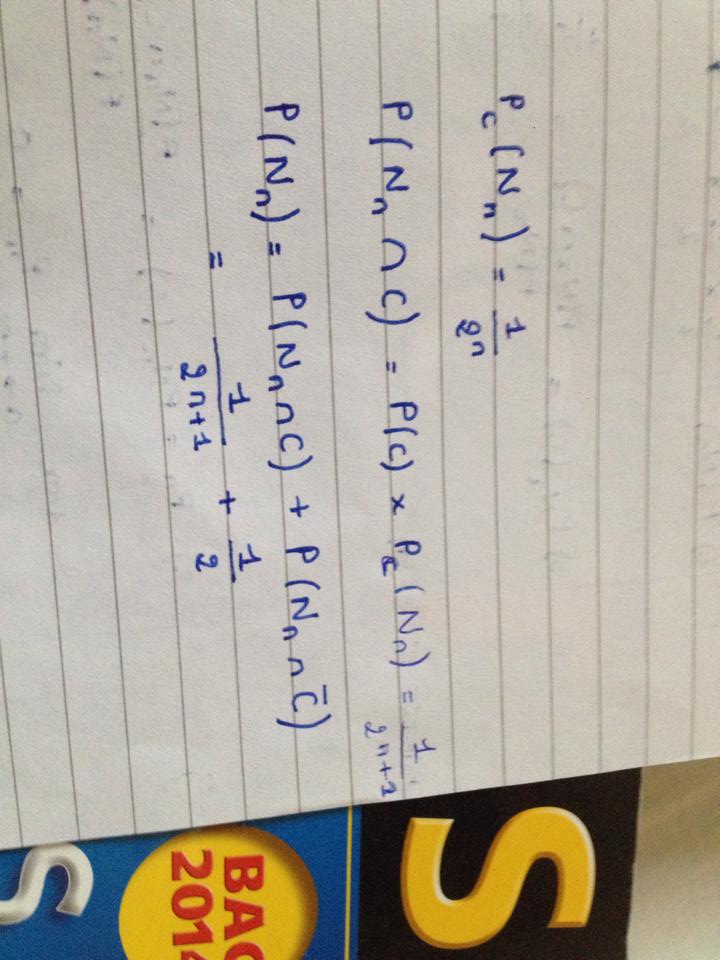 P_C (N_n) = 1/2^n
P(N_n ∩ C) = P(C) × P_C (N_n) = 1/2^{n+1}
P(N_n) = P(N_n ∩ C) + P(N_n ∩ C̄)
= 1/2^{n+1} + 1/2
S
BAC
201
S